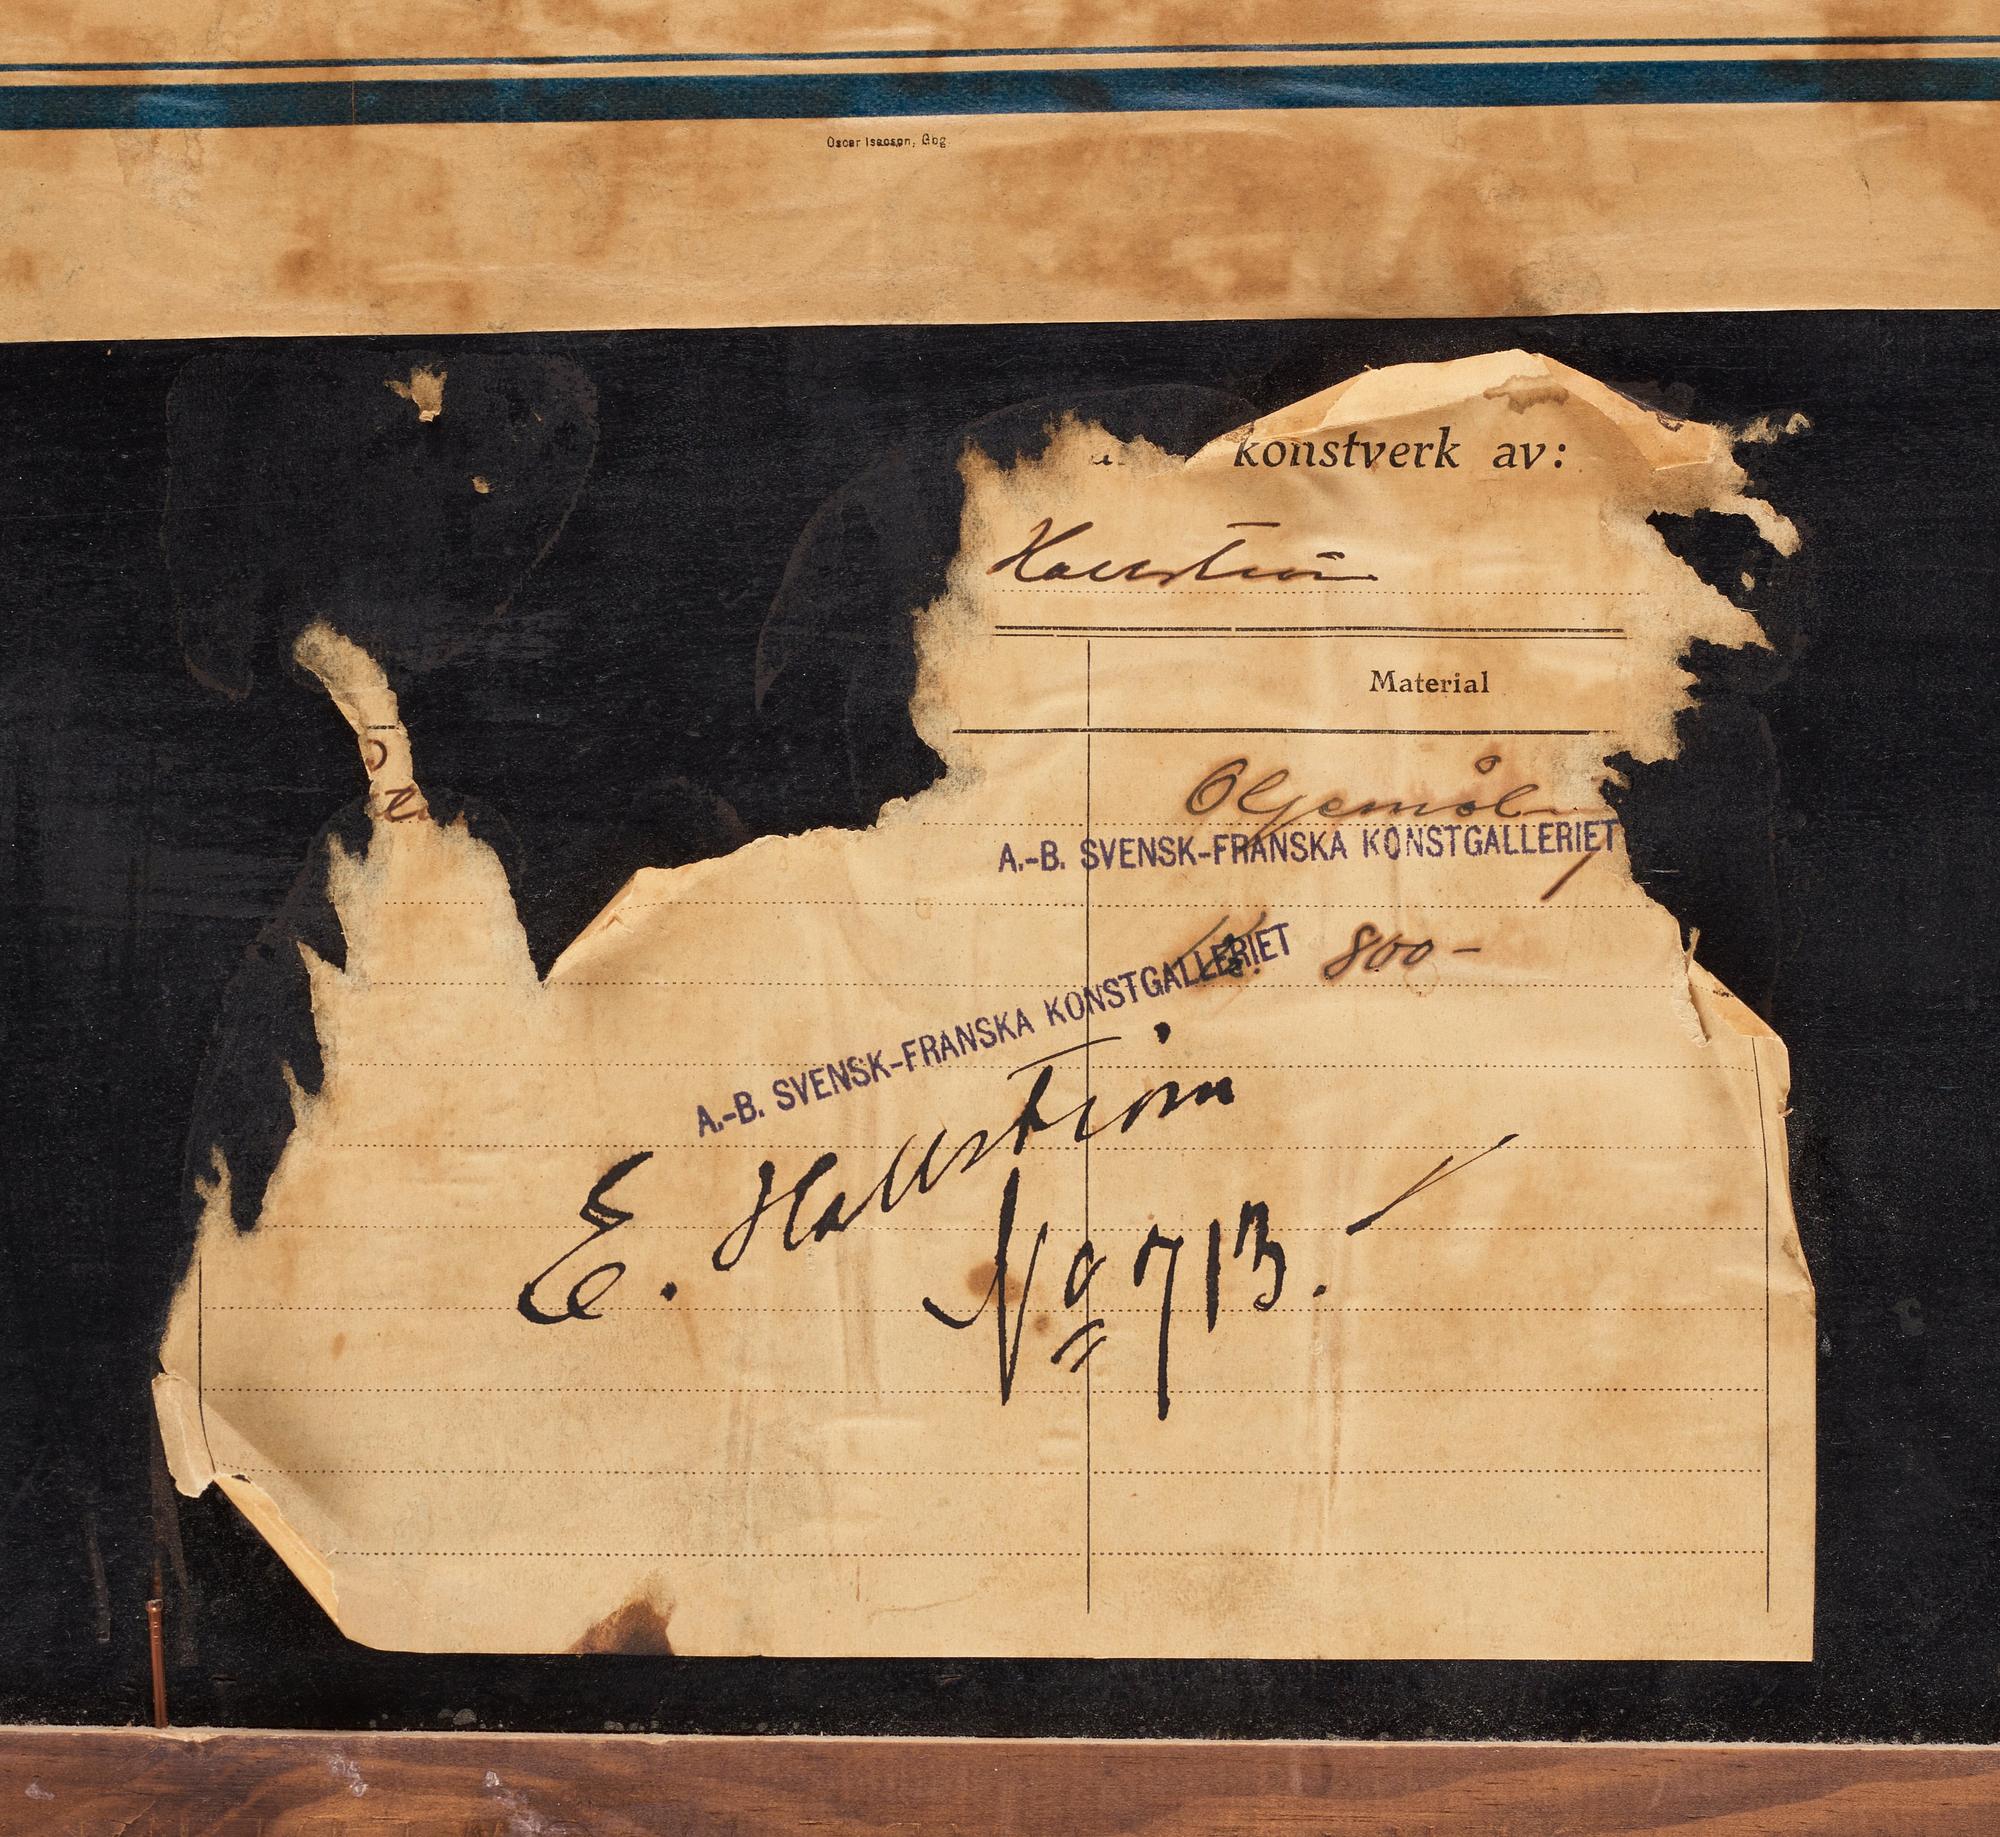 Oscar Isacson, Gbg
konstverk av:
Hallström
Material
Oljemåln
A.-B. SVENSK-FRANSKA KONSTGALLERIET
800-
A.-B. SVENSK-FRANSKA KONSTGALLERIET
E. Hallström
No 713.